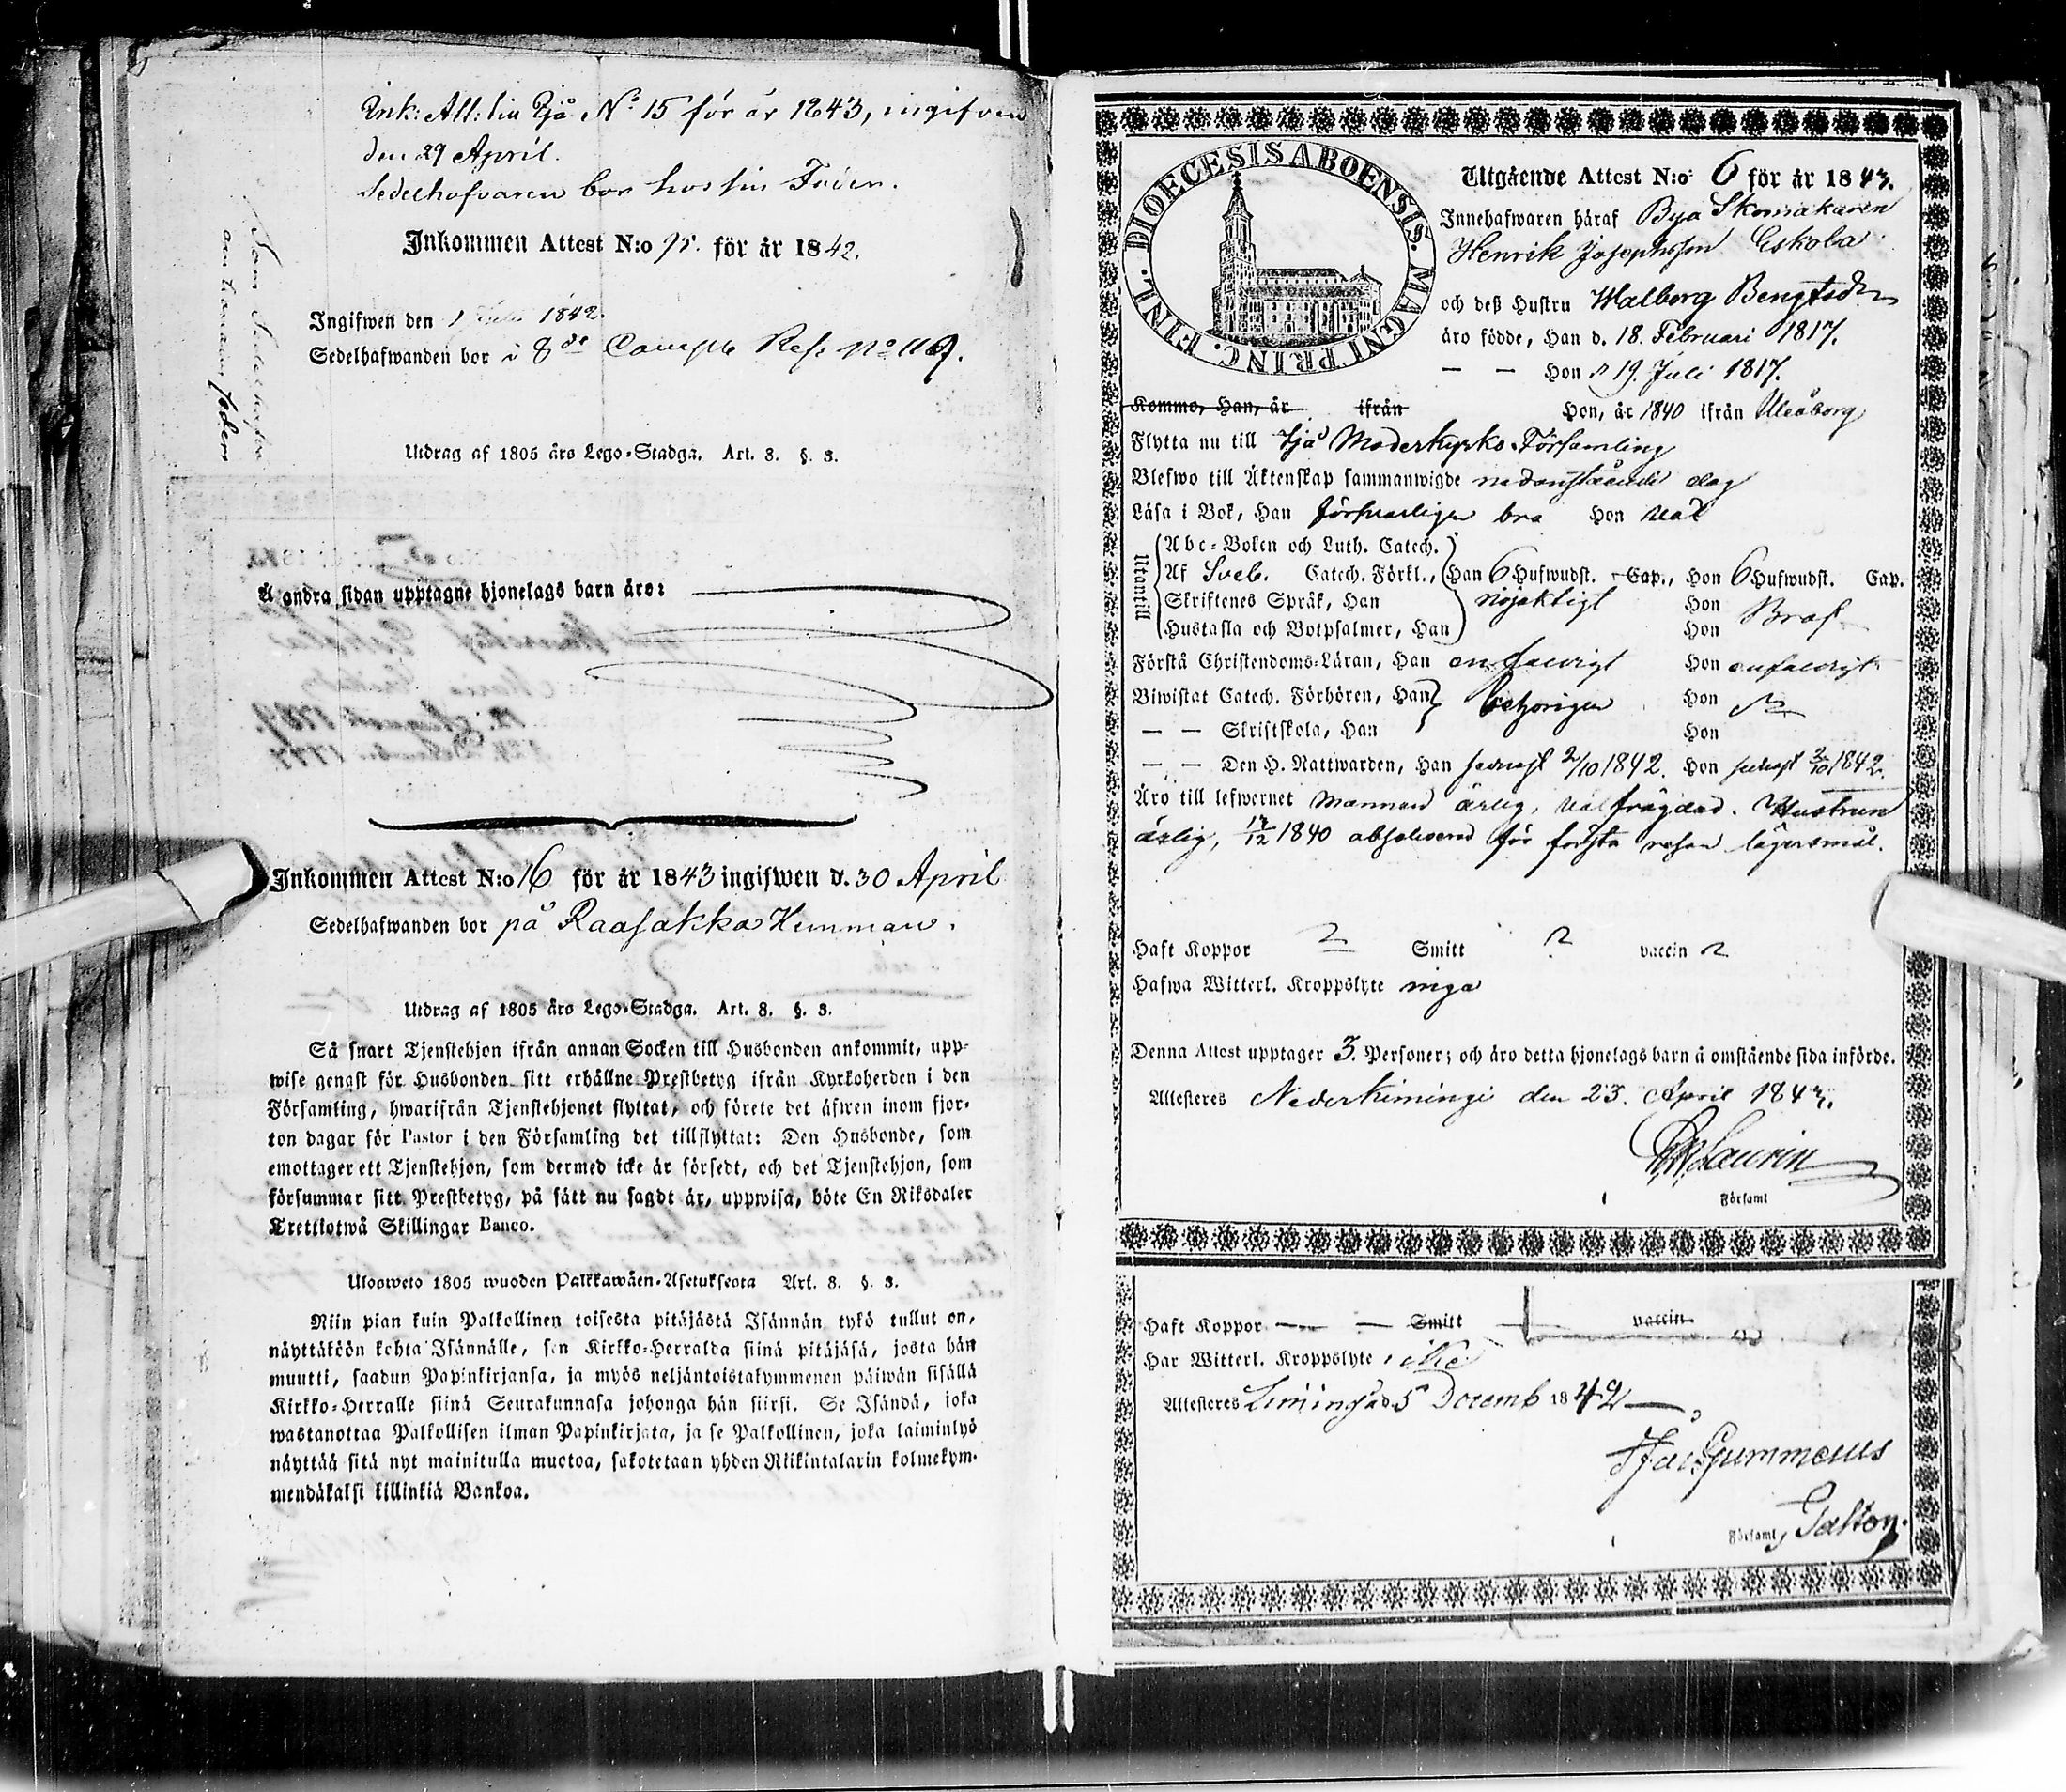 Ink: Att: lin Ijå N:o 15 för år 1843, ingifven
den 29 April.
Sedelhafvaren bor hos sin Fader.
Inkommen Attest N:o 15. för år 1842.
Ingifwen den 1 Juli 1842.
Sedelhafwanden bor i 8de Comple Ref. No 119.
Utdrag af 1805 års Lego-Stadga. Art. 8. §. 3.
Å andra sidan upptagne hjonelags barn äro:
Inkommen Attest N:o 16 för år 1843 ingifwen d. 30 April
Sedelhafwanden bor på Raasakka Hemman.
Utdrag af 1805 års Lego-Stadga. Art. 8. §. 3.
Så snart Tjenstehjon ifrån annan Socken till Husbonden ankommit, upp-
wise genast för Husbonden sitt erhållne Prestbetyg ifrån Kyrkoherden i den
Församling, hwarifrån Tjenstehjonet flyttat, och förete det äfwen inom fjor-
ton dagar för Pastor i den Församling det tillflyttat: Den Husbonde, som
emottager ett Tjenstehjon, som dermed icke är försedt, och det Tjenstehjon, som
försummar sitt Prestbetyg, på sätt nu sagdt är, uppwisa, böte En Riksdaler
Trettiotwå Skillingar Banco.
Ulosweto 1805 wuoden Palkkawäen-Asetuksesta Art. 8. §. 3.
Niin pian kuin Palkollinen toisesta pitäjästä Isännän tykö tullut on,
näyttäköön kohta Isännälle, sen Kirkko-Herralda siinä pitäjäsä, josta hän
muutti, saadun Papinkirjansa, ja myös neljäntoistakymmenen päiwän sisällä
Kirkko-Herralle siinä Seurakunnasa johonga hän siirsi. Se Isändä, joka
wastanottaa Palkollisen ilman Papinkirjata, ja se Palkollinen, joka laiminlyö
näyttää sitä nyt mainitulla muotoa, sakotetaan yhden Riikintalarin kolmekym-
mendäkaksi killinkiä Bankoa.
DIOECESIS ABOENSIS. MAGNI PRINC. FINL.
Utgående Attest N:o 6 för år 1843.
Innehafwaren häraf Bya Skomakaren
Henrik Josephsson Eskola
och deß Hustru Walborg Bengtsdr
äro födde, Han d. 18. Februari 1817.
— — Hon d 19. Juli 1817.
Kommo, Han, år ifrån Hon, år 1840 ifrån Uleåborg
Flytta nu till Ijå Moderkyrko-Församling
Blefwo till Äktenskap sammanwigde nedanstående dag
Läsa i Bok, Han försvarligen bra Hon väl
Utantill
Abc-Boken och Luth. Catech.
Af Sveb. Catech. Förkl., Han 6 Hufwudst. Cap., Hon 6 Hufwudst. Cap.
Skriftenes Språk, Han nöjaktigt Hon Braf
Hustafla och Botpsalmer, Han Hon
Förstå Christendoms-Läran, Han enfaldigt Hon enfaldigt
Biwistat Catech. Förhören, Han behörigen Hon
— — Skriftskola, Han Hon
— — Den H. Nattwarden, Han senast 2/10 1842. Hon senast 2/10 1842.
Äro till lefwernet Mannen ärlig, välfrägdad. Hustrun
ärlig, 17/12 1840 absolverad för första resan lägersmål.
Haft Koppor Smitt ? vaccin
Hafwa Witterl. Kroppslyte inga
Denna Attest upptager 3. Personer; och äro detta hjonelags barn å omstående sida införde.
Attesteres Nederkiminge den 23. April 1843.
Laurin
Församl
Haft Koppor — — Smitt vaccin
Har Witterl. Kroppslyte, icke
Attesteres Limingå d 5 Decemb 1842
Gummerus
Församl, Pastor.